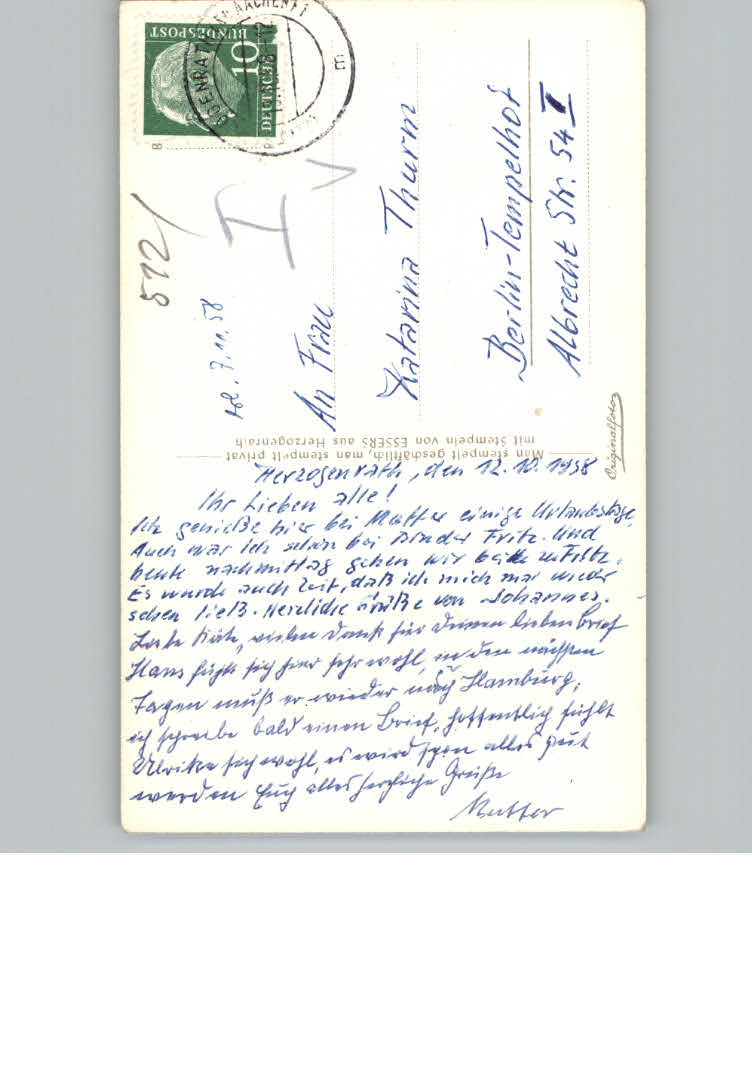 DEUTSCHE
BUNDESPOST
10
AACHEN) 1
m
8
512/
I V
7.11.58
An Frau
Katarina Thurm
Berlin-Tempelhof
Albrecht Str. 54 I
Man stempelt geschäftlich, man stempelt privat
mit Stempeln von ESSERS aus Herzogenrath
Originalfoto
Herzogenrath, den 12.10.1958
Ihr Lieben alle!
Ich genieße hier bei Mutter einige Urlaubstage.
Auch war ich schon bei Bruder Fritz. Und
heute nachmittag gehen wir beide
Es wurde auch Zeit, daß ich mich mal wieder
sehen ließ. Herzliche Grüße von Johannes.
Liebe Käte, vielen Dank für Deinen lieben Brief
Hans fühlt sich hier sehr wohl, in den nächsten
Tagen muß er wieder nach Hamburg,
ich schreibe bald einen Brief, hoffentlich fühlt
Ulrike sich wohl, es wird schon alles gut
werden Euch alles herzliche Grüße
Mutter